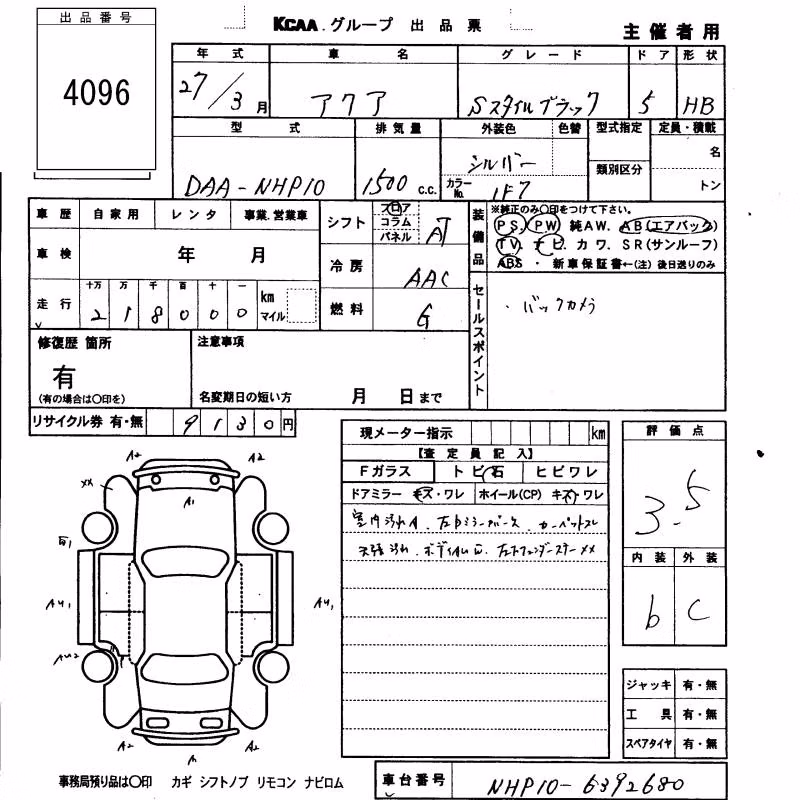 出品番号
4096
KCAA.グループ 出品票
主催者用
年式 車名 グレード ドア 形状
27/3月 アクア Sスタイルブラック 5 HB
型式 排気量 外装色 色替 型式指定 定員・積載
DAA-NHP10 1500c.c. シルバー 名
類別区分
カラーNo. 1F7 トン
車歴 自家用 レンタ 事業.営業車
シフト フロア コラム パネル AT
装備品
※純正のみ○印をつけて下さい。
PS. PW 純AW. AB(エアバック)
TV. ナビ. カワ. SR(サンルーフ)
ABS・新車保証書←(注)後日送りのみ
車検 年 月
冷房 AAC
走行 十万 万 千 百 十 一
218000 km マイル
燃料 G
セールスポイント
・バックカメラ
修復歴 箇所
有
(有の場合は○印を)
注意事項
名変期日の短い方 月 日まで
リサイクル券 有・無 9130円
現メーター指示 km
【査定員記入】
Fガラス トビ石 ヒビワレ
ドアミラー キズ・ワレ ホイール(CP) キズ・ワレ
室内汚れA.
天張汚れ.
評価点
3-5
内装 外装
b C
A2 A2
XX A1
AU1 AU1
AU2
A2 A2
ジャッキ 有・無
工具 有・無
スペアタイヤ 有・無
事務局預り品は○印 カギ シフトノブ リモコン ナビロム
車台番号 NHP10-6392680